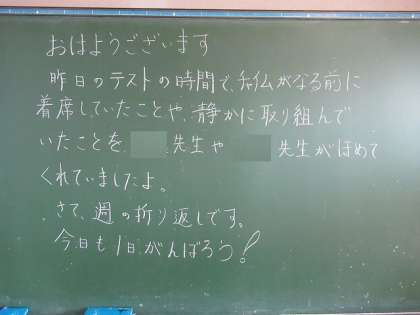 おはようございます
昨日のテストの時間で、チャイムがなる前に
着席していたことや、静かに取り組んで
いたことを、先生や 先生がほめて
くれていましたよ。
さて、週の折り返しです。
今日も1日がんばろう!